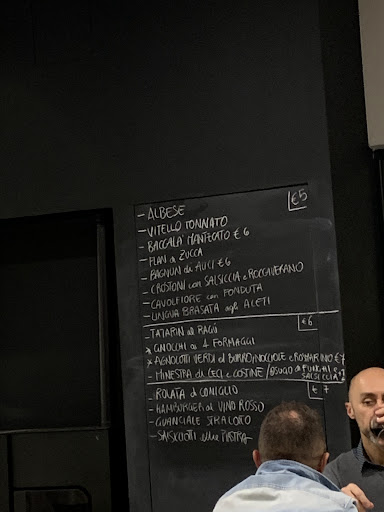 €5
- ALBESE
- VITELLO TONNATO
- BACCALA' MANTECATO € 6
- FLAN di ZUCCA
- BAGNUN di AUCI € 6
- CROSTONI con SALSICCIA e ROCCAVERANO
- CAVOLFIORE con FONDUTA
- LINGUA BRASATA agli ACETI
€6
- TAJARIN al RAGÙ
* GNOCCHI ai 4 FORMAGGI
* AGNOLOTTI VERDI al BURRO, NOCCIOLE e ROSMARINO € 7
- MINESTRA di CECI e COSTINE / @SUGO di FUNGHI e SALSICCIA
€ 7
- ROLATA di CONIGLIO
- HAMBURGER al VINO ROSSO
- GUANCIALE STRACOTTO
- SALSICCIOTTI alla PIASTRA